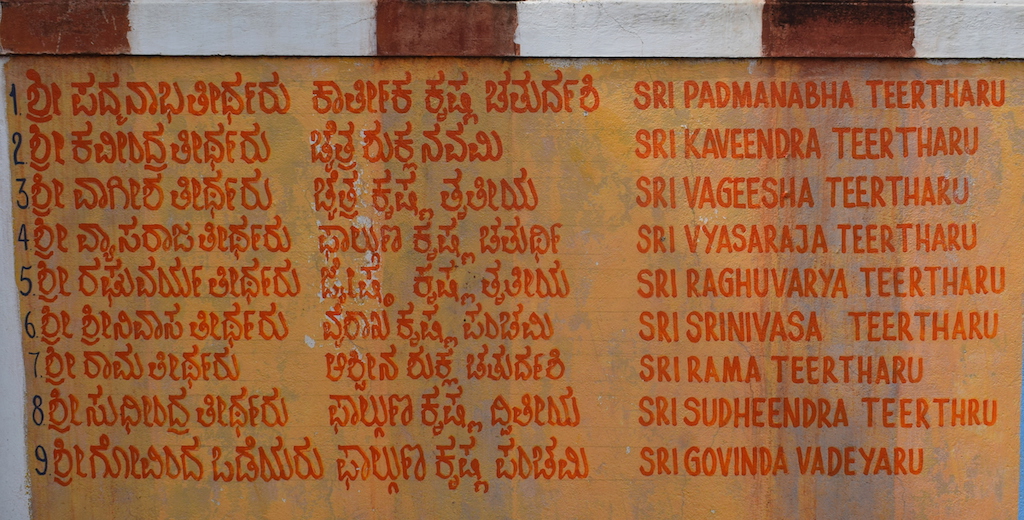 1. ಶ್ರೀ ಪದ್ಮನಾಭತೀರ್ಥರು ಕಾರ್ತೀಕ ಕೃಷ್ಣ ಚತುರ್ದಶಿ SRI PADMANABHA TEERTHARU
2. ಶ್ರೀ ಕವೀಂದ್ರತೀರ್ಥರು ಚೈತ್ರ ಶುಕ್ಲ ನವಮಿ SRI KAVEENDRA TEERTHARU
3 ಶ್ರೀ ವಾಗೀಶ ತೀರ್ಥರು ಚೈತ್ರ ಕೃಷ್ಣ ತೃತೀಯ SRI VAGEESHA TEERTHARU
4 ಶ್ರೀ ವ್ಯಾಸರಾಜತೀರ್ಥರು ಫಾಲ್ಗುಣ ಕೃಷ್ಣ ಚತುರ್ಥಿ SRI VYASARAJA TEERTHARU
5 ಶ್ರೀ ರಘುವರ್ಯ ತೀರ್ಥರು ಜೈಷ್ಠ ಕೃಷ್ಣ ತೃತೀಯ SRI RAGHUVARYA TEERTHARU
6. ಶ್ರೀ ಶ್ರೀನಿವಾಸ ತೀರ್ಥರು ಕೃಷ್ಣ ಪಂಚಮಿ SRI SRINIVASA TEERTHARU
7. ಶ್ರೀ ರಾಮ ತೀರ್ಥರು ಆಶ್ವೀನ ಶುಕ್ಲ ಚತುರ್ದಶಿ SRI RAMA TEERTHARU
8 ಶ್ರೀ ಸುಧೀಂದ್ರ ತೀರ್ಥರು ಫಾಲ್ಗುಣ ಕೃಷ್ಣ ದ್ವಿತೀಯ SRI SUDHEENDRA TEERTHRU
9. ಶ್ರೀಗೋವಿಂದ ಒಡೆಯರು ಫಾಲ್ಗುಣ ಕೃಷ್ಣ ಪಂಚಮಿ SRI GOVINDA VADEYARU